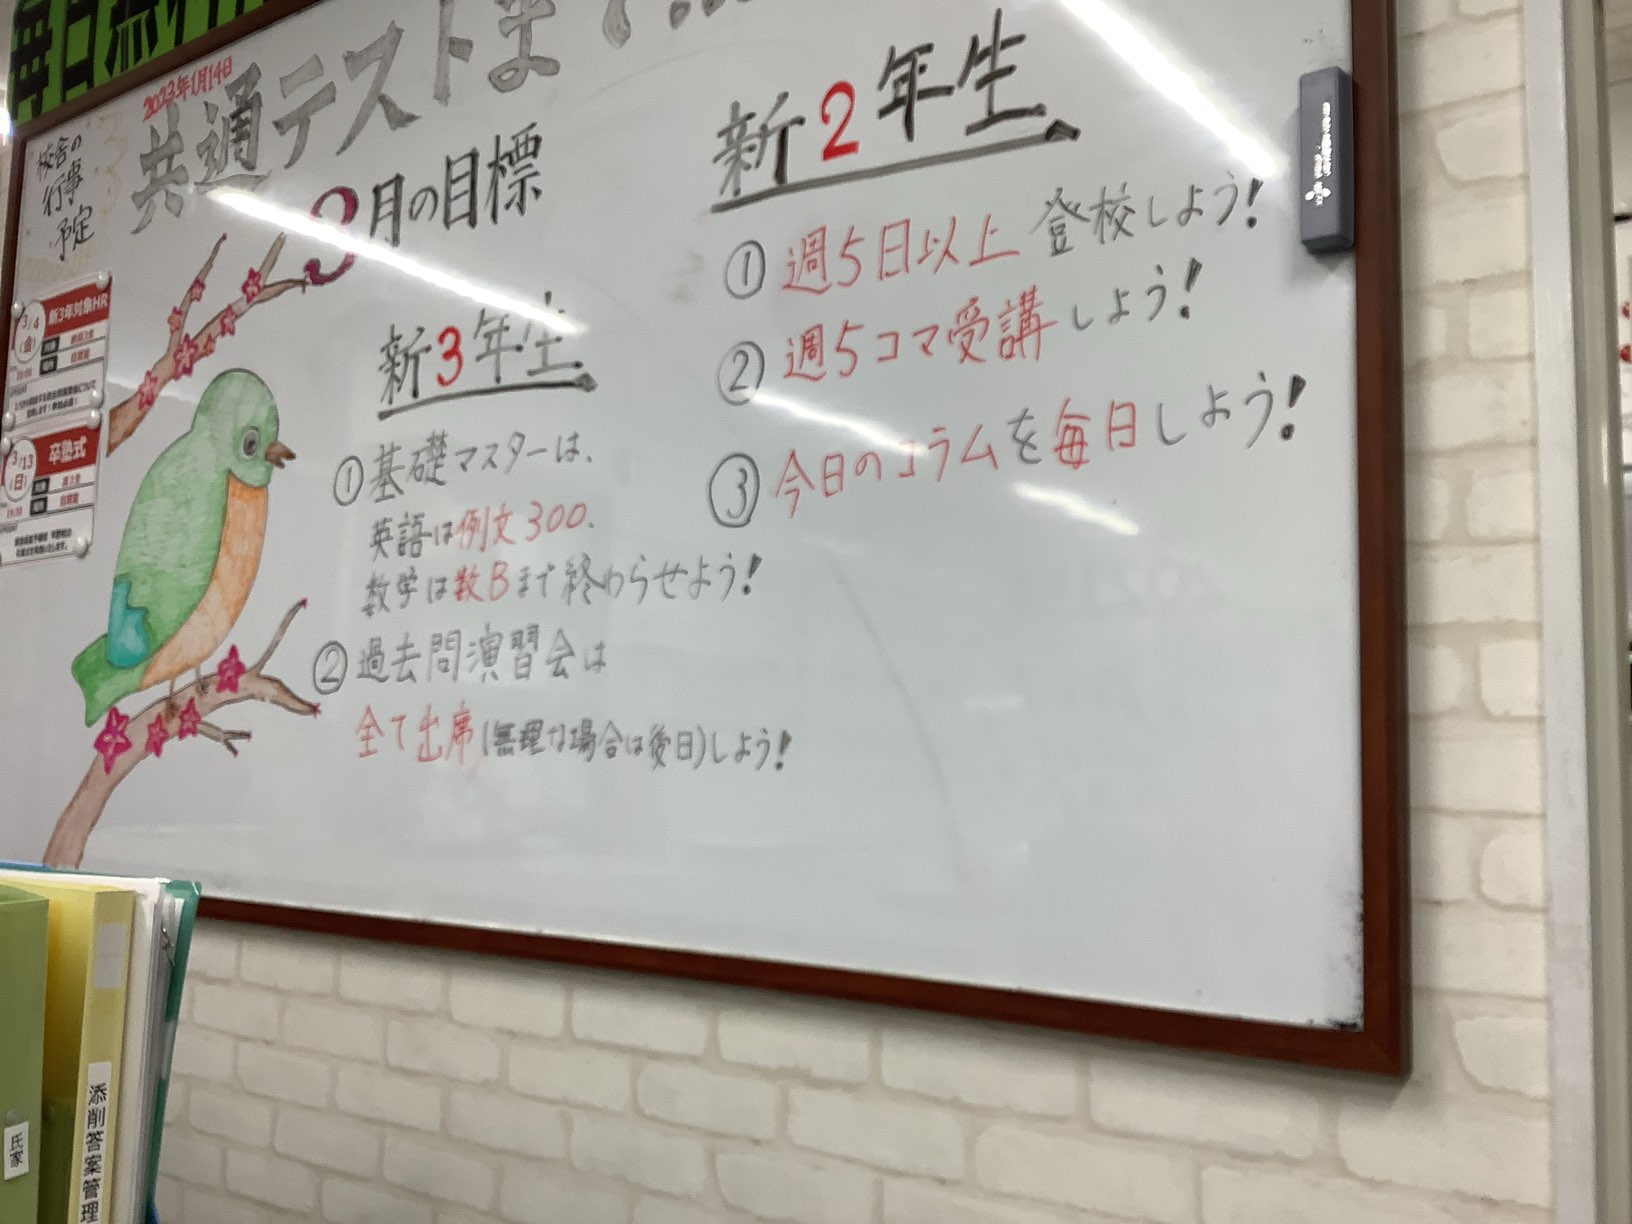 2023年1月14日
共通テストま
校舎の
行事
予定
3月の目標
新3年対象HR
3/4
(金)
卒塾式
3/13
(日)
19:30
新3年生
①基礎マスターは、
英語は例文300、
数学は数Bまで終わらせよう!
②過去問演習会は
全て出席(無理な場合は後日)しよう!
新2年生
①週5日以上登校しよう!
②週5コマ受講しよう!
③今日のコラムを毎日しよう!
氏家
添削答案管理